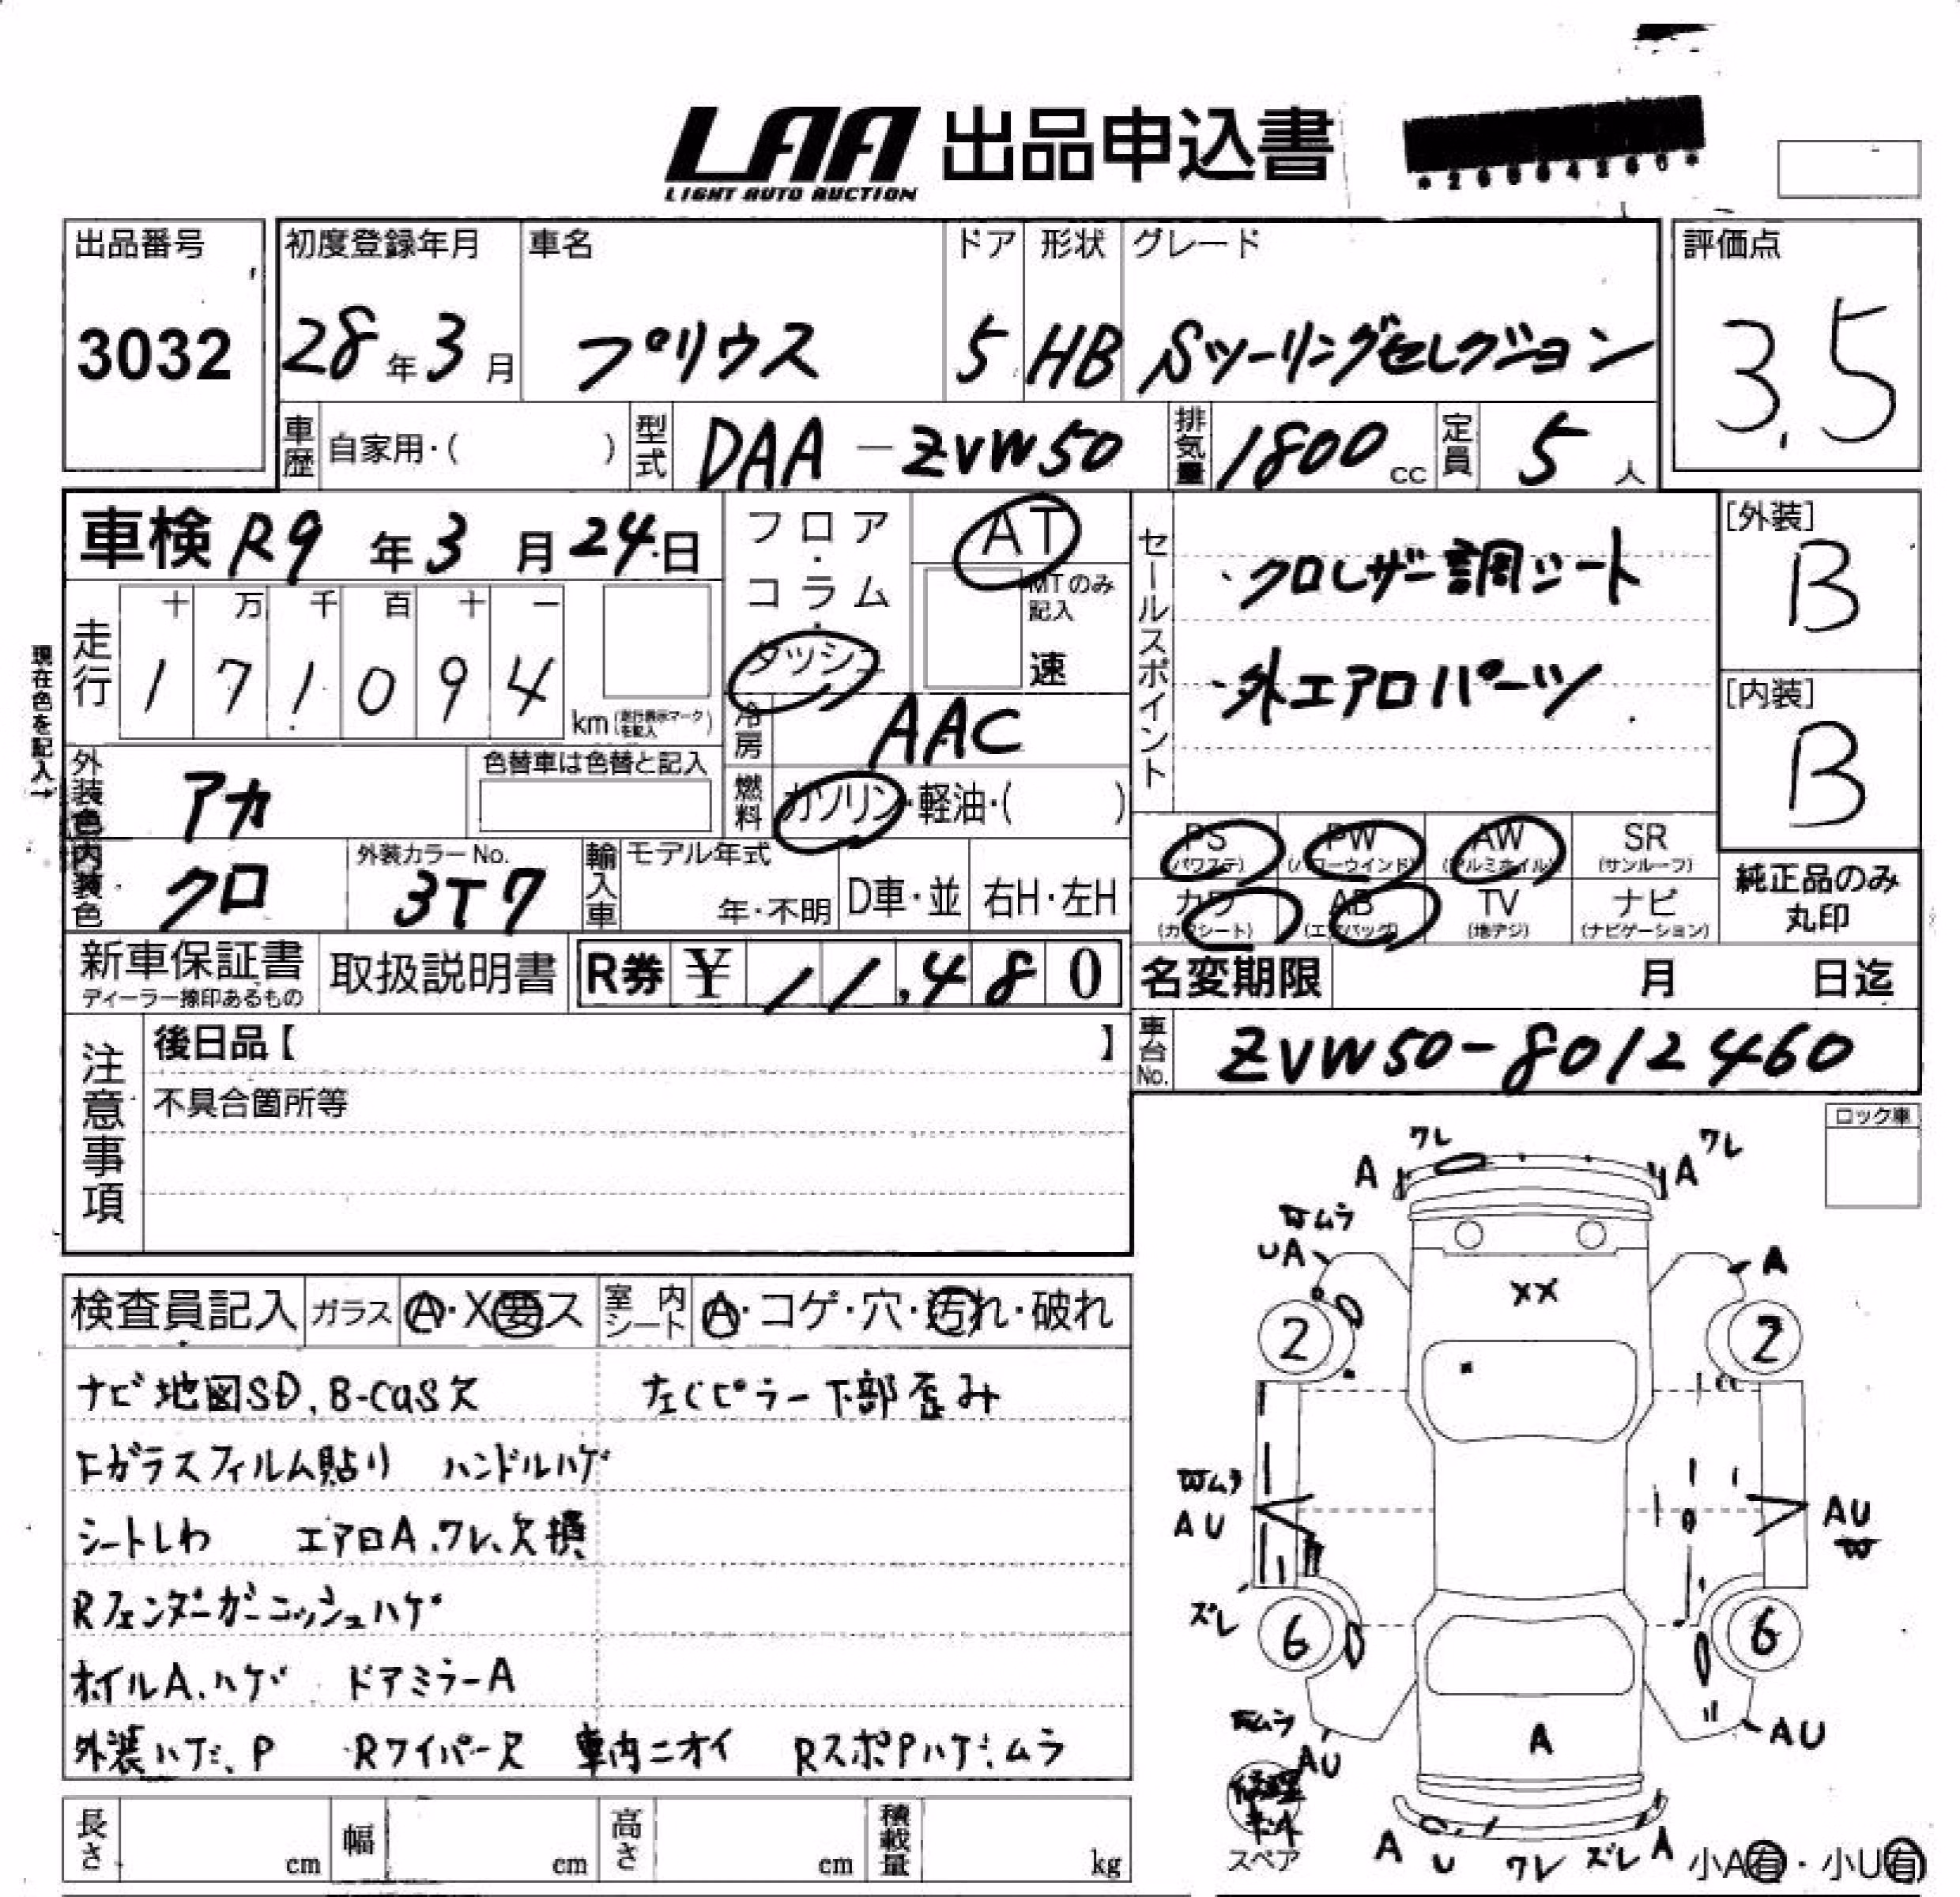 LAA 出品申込書
LIGHT AUTO AUCTION
出品番号 初度登録年月 車名 ドア 形状 グレード 評価点
3032 28年3月 プリウス 5 HB Sツーリングセレクション 3.5
車歴 自家用・( ) 型式 DAA-ZVW50 排気量 1800cc 定員 5人
車検 R9年3月24日 フロア・コラム・ダッシュ AT
MTのみ記入 速
現在色を記入→
走行 十 万 千 百 十 一
171094 km (走行表示マークを記入)
冷房 AAC
外装色 アカ 色替車は色替と記入 燃料 ガソリン・軽油・( )
内装色 クロ 外装カラーNo. 3T7 輸入車 モデル年式 年・不明 D車・並 右H・左H
セールスポイント
・クロレザー調シート
・外エアロパーツ
[外装]
B
[内装]
B
PS (パワステ) PW (パワーウインド) AW (アルミホイル) SR (サンルーフ)
カワ (カワシート) AB (エアバッグ) TV (地デジ) ナビ (ナビゲーション)
純正品のみ丸印
新車保証書 ディーラー捺印あるもの 取扱説明書 R券 ¥11,480 名変期限 月 日迄
車台No. ZVW50-8012460
注意事項
後日品【 】
不具合箇所等
ロック車
検査員記入 ガラス A・X要ス 室内シート A・コゲ・穴・汚れ・破れ
ナビ地図SD、B-CAS欠 左Cピラー下部歪み
Fガラスフィルム貼り ハンドルハゲ
シートしわ エアロA、ワレ、欠損
Rフェンダーガーニッシュハゲ
ホイルA、ハゲ ドアミラーA
外装ハゲ、P Rワイパー欠 車内ニオイ RスポPハゲ、ムラ
長さ cm 幅 cm 高さ cm 積載量 kg
ワレ ワレ
A A
Wムラ
UA A
XX
2 2
Wムラ
AU AU
W
ズレ
6 6
Wムラ
AU A AU
修理キット
スペア
A U ワレ ズレ A
小A有・小U有